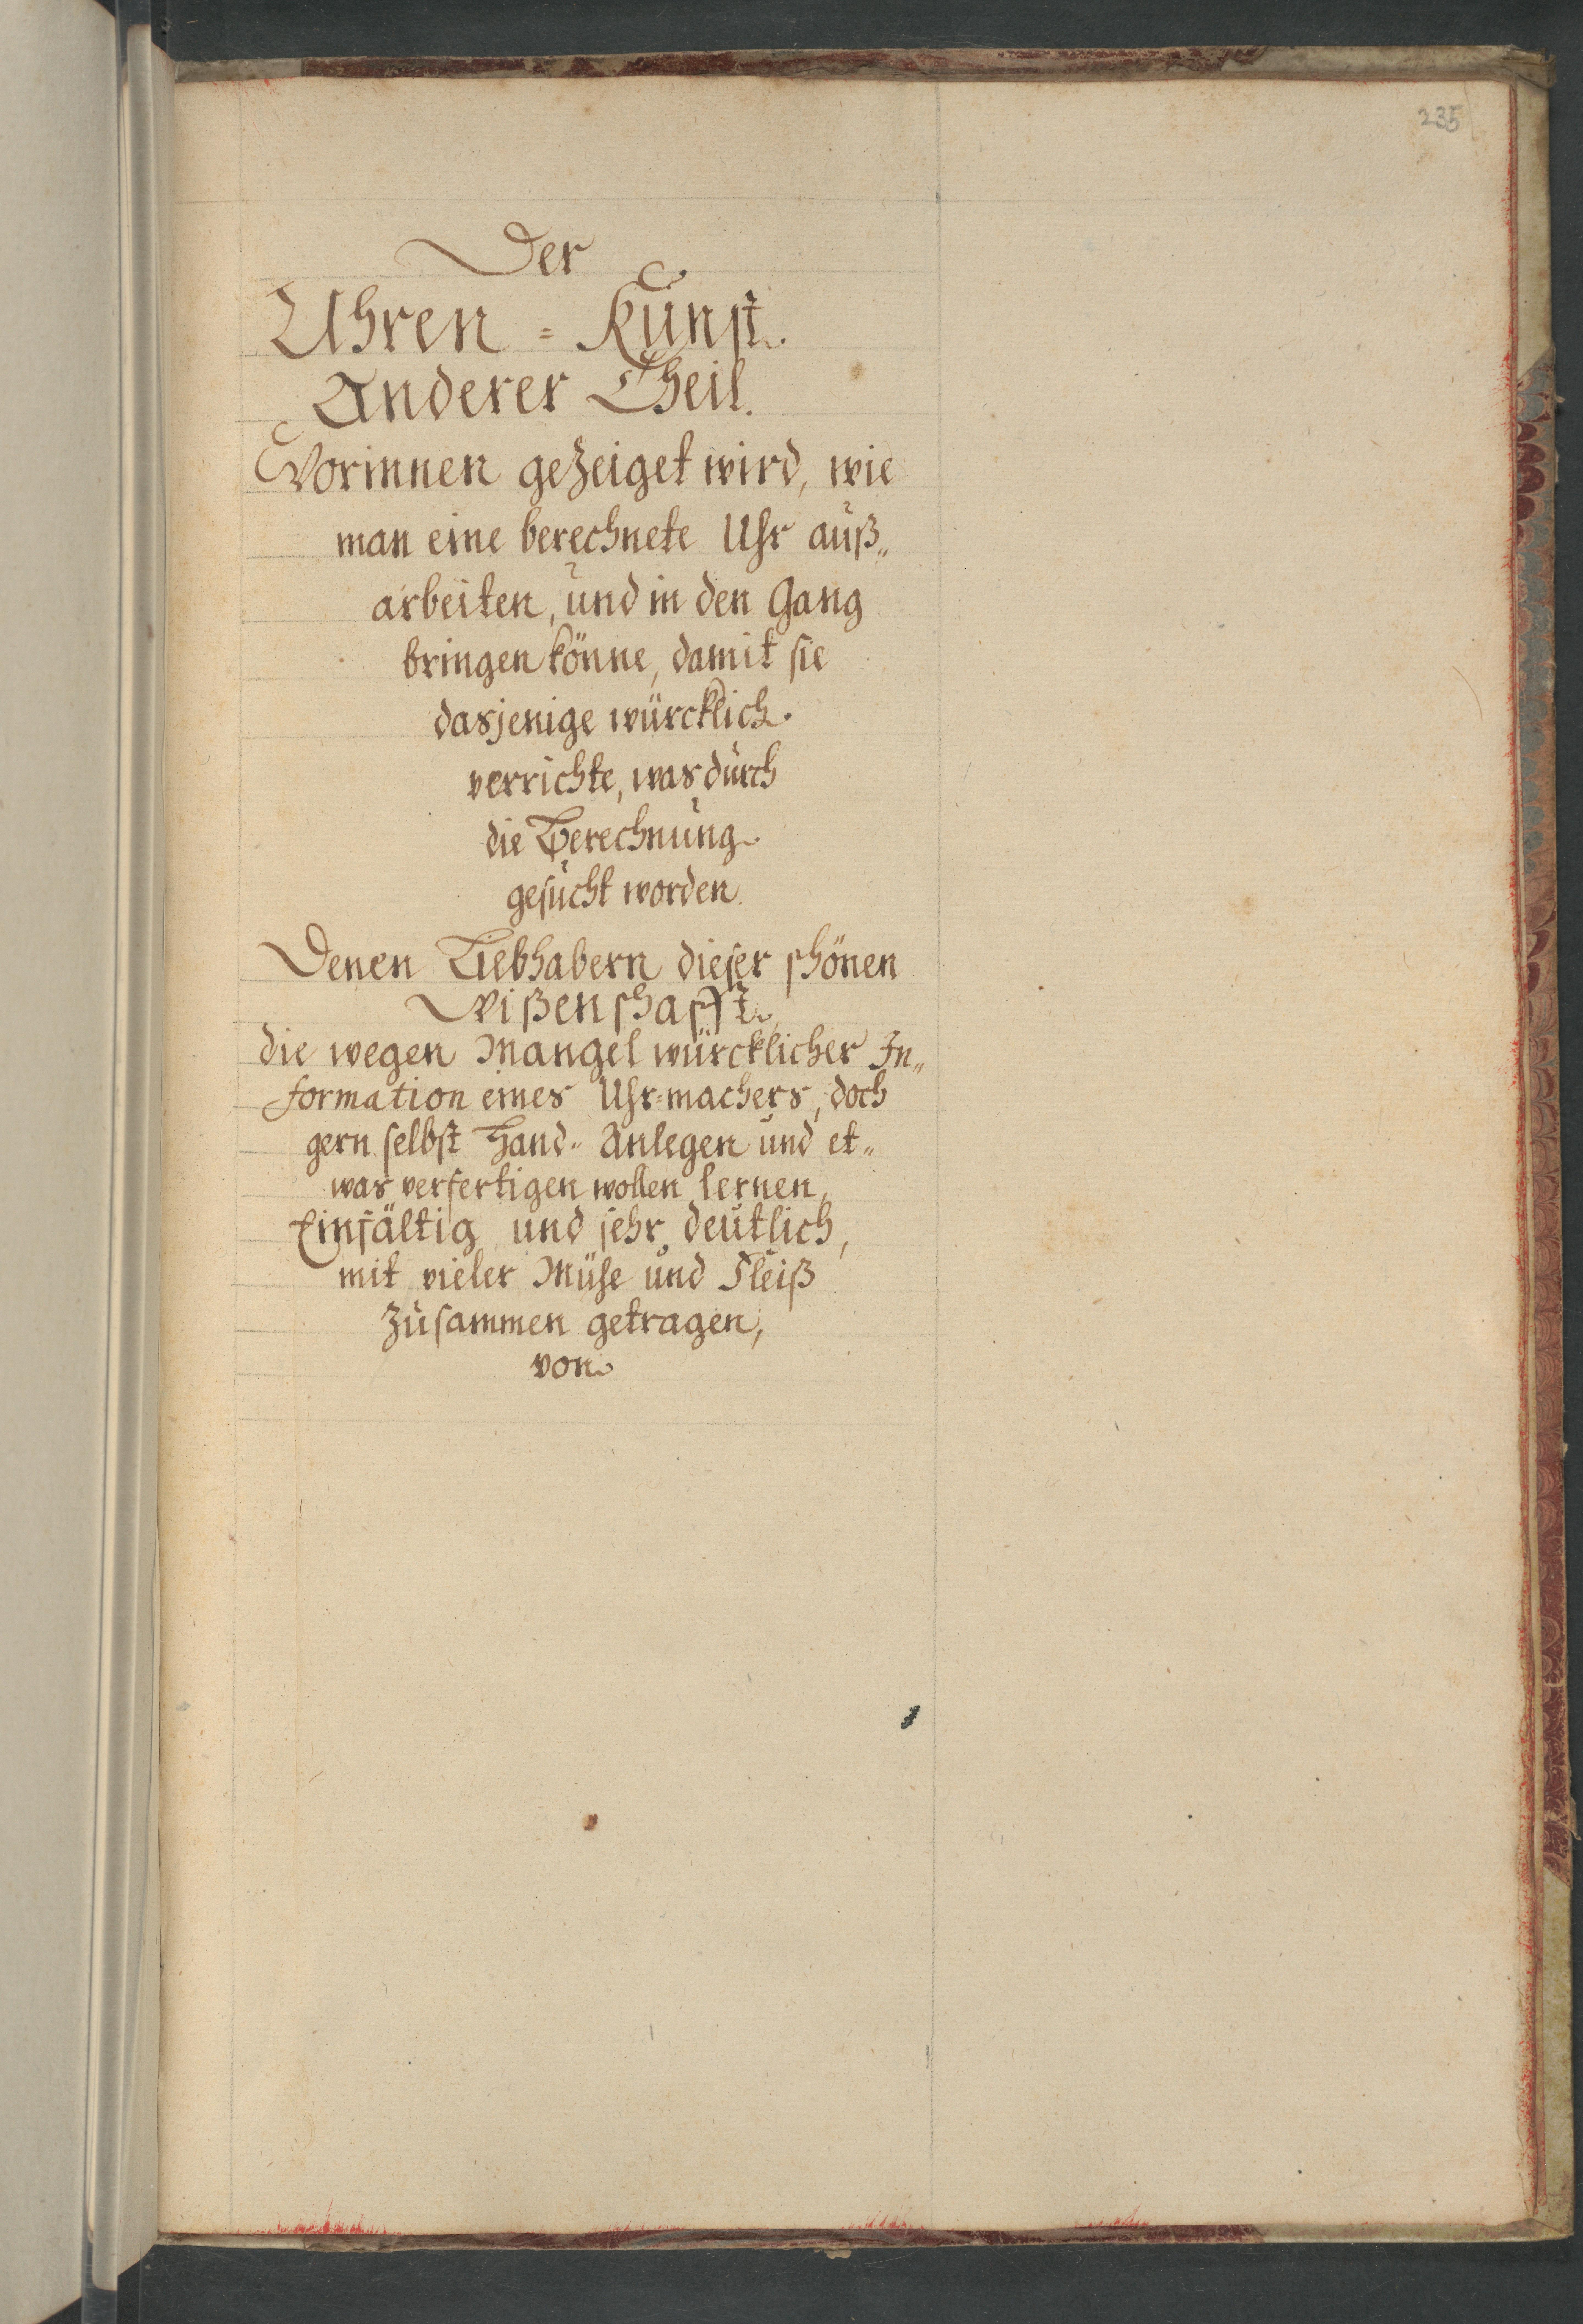 235
Der
Uhren = Kunst
Anderer Theil.
Worinnen gezeiget wird, wie
man eine berechnete Uhr auß„
arbeiten, und in den Gang
bringen könne, damit sie
dasjenige würcklich
verrichte, was durch
die Berechnung
gesucht worden.
Denen Liebhabern dieser schönen
Wißenschafft,
die wegen Mangel würcklicher In„
formation eines Uhr=machers, doch
gern selbst Hand„ Anlegen und et„
was verfertigen wollen lernen,
Einfältig und sehr deutlich,
mit vieler Mühe und Fleiß
zusammen getragen,
von